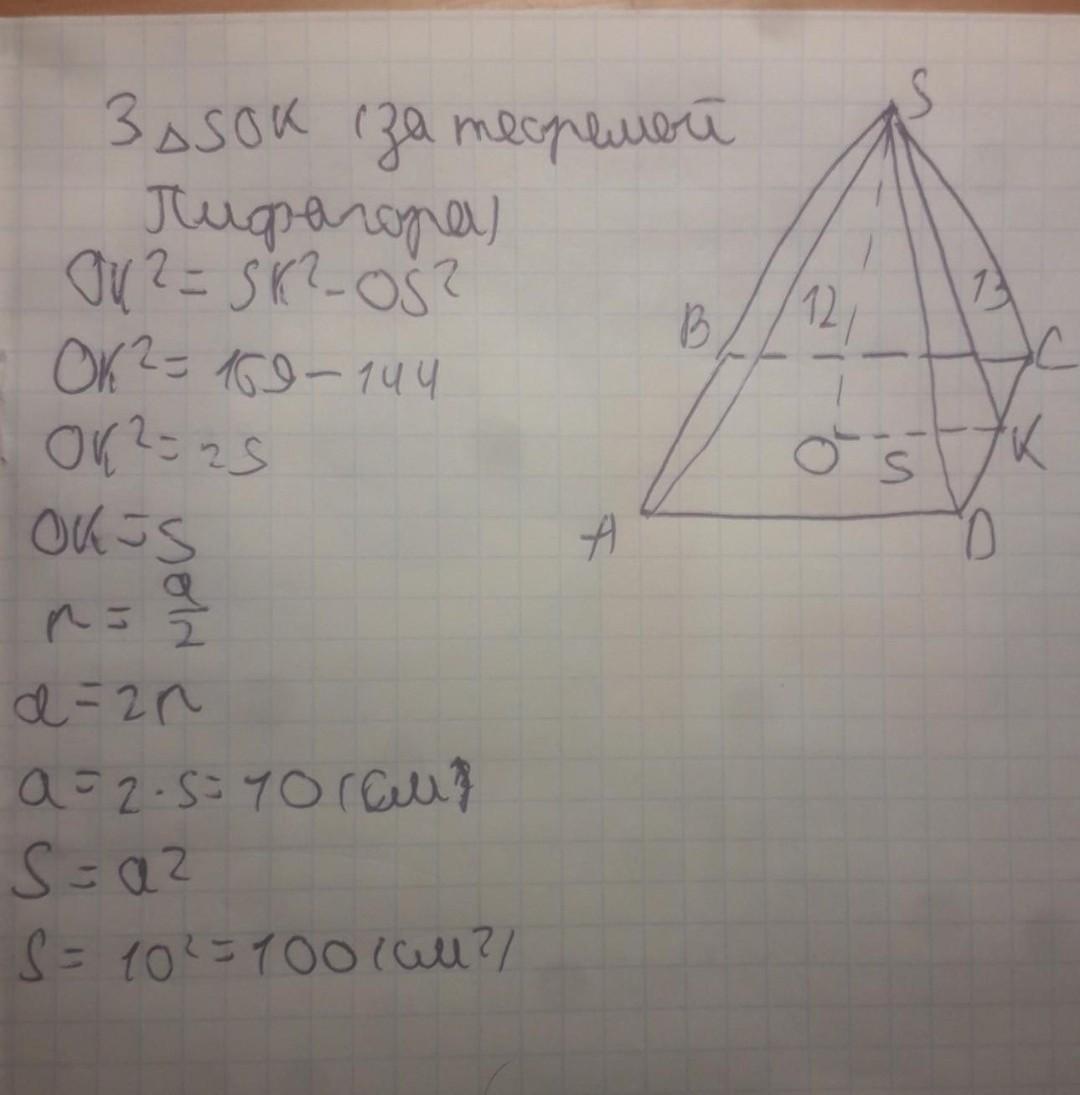 З △SOK (за теоремой
Пифагора)
OK² = SK² - OS²
OK² = 169 - 144
OK² = 25
OK = 5
r = a/2
a = 2r
a = 2 · 5 = 10 (см)
S = a²
S = 10² = 100 (см²)
S
12
13
B
C
O
5
K
A
D